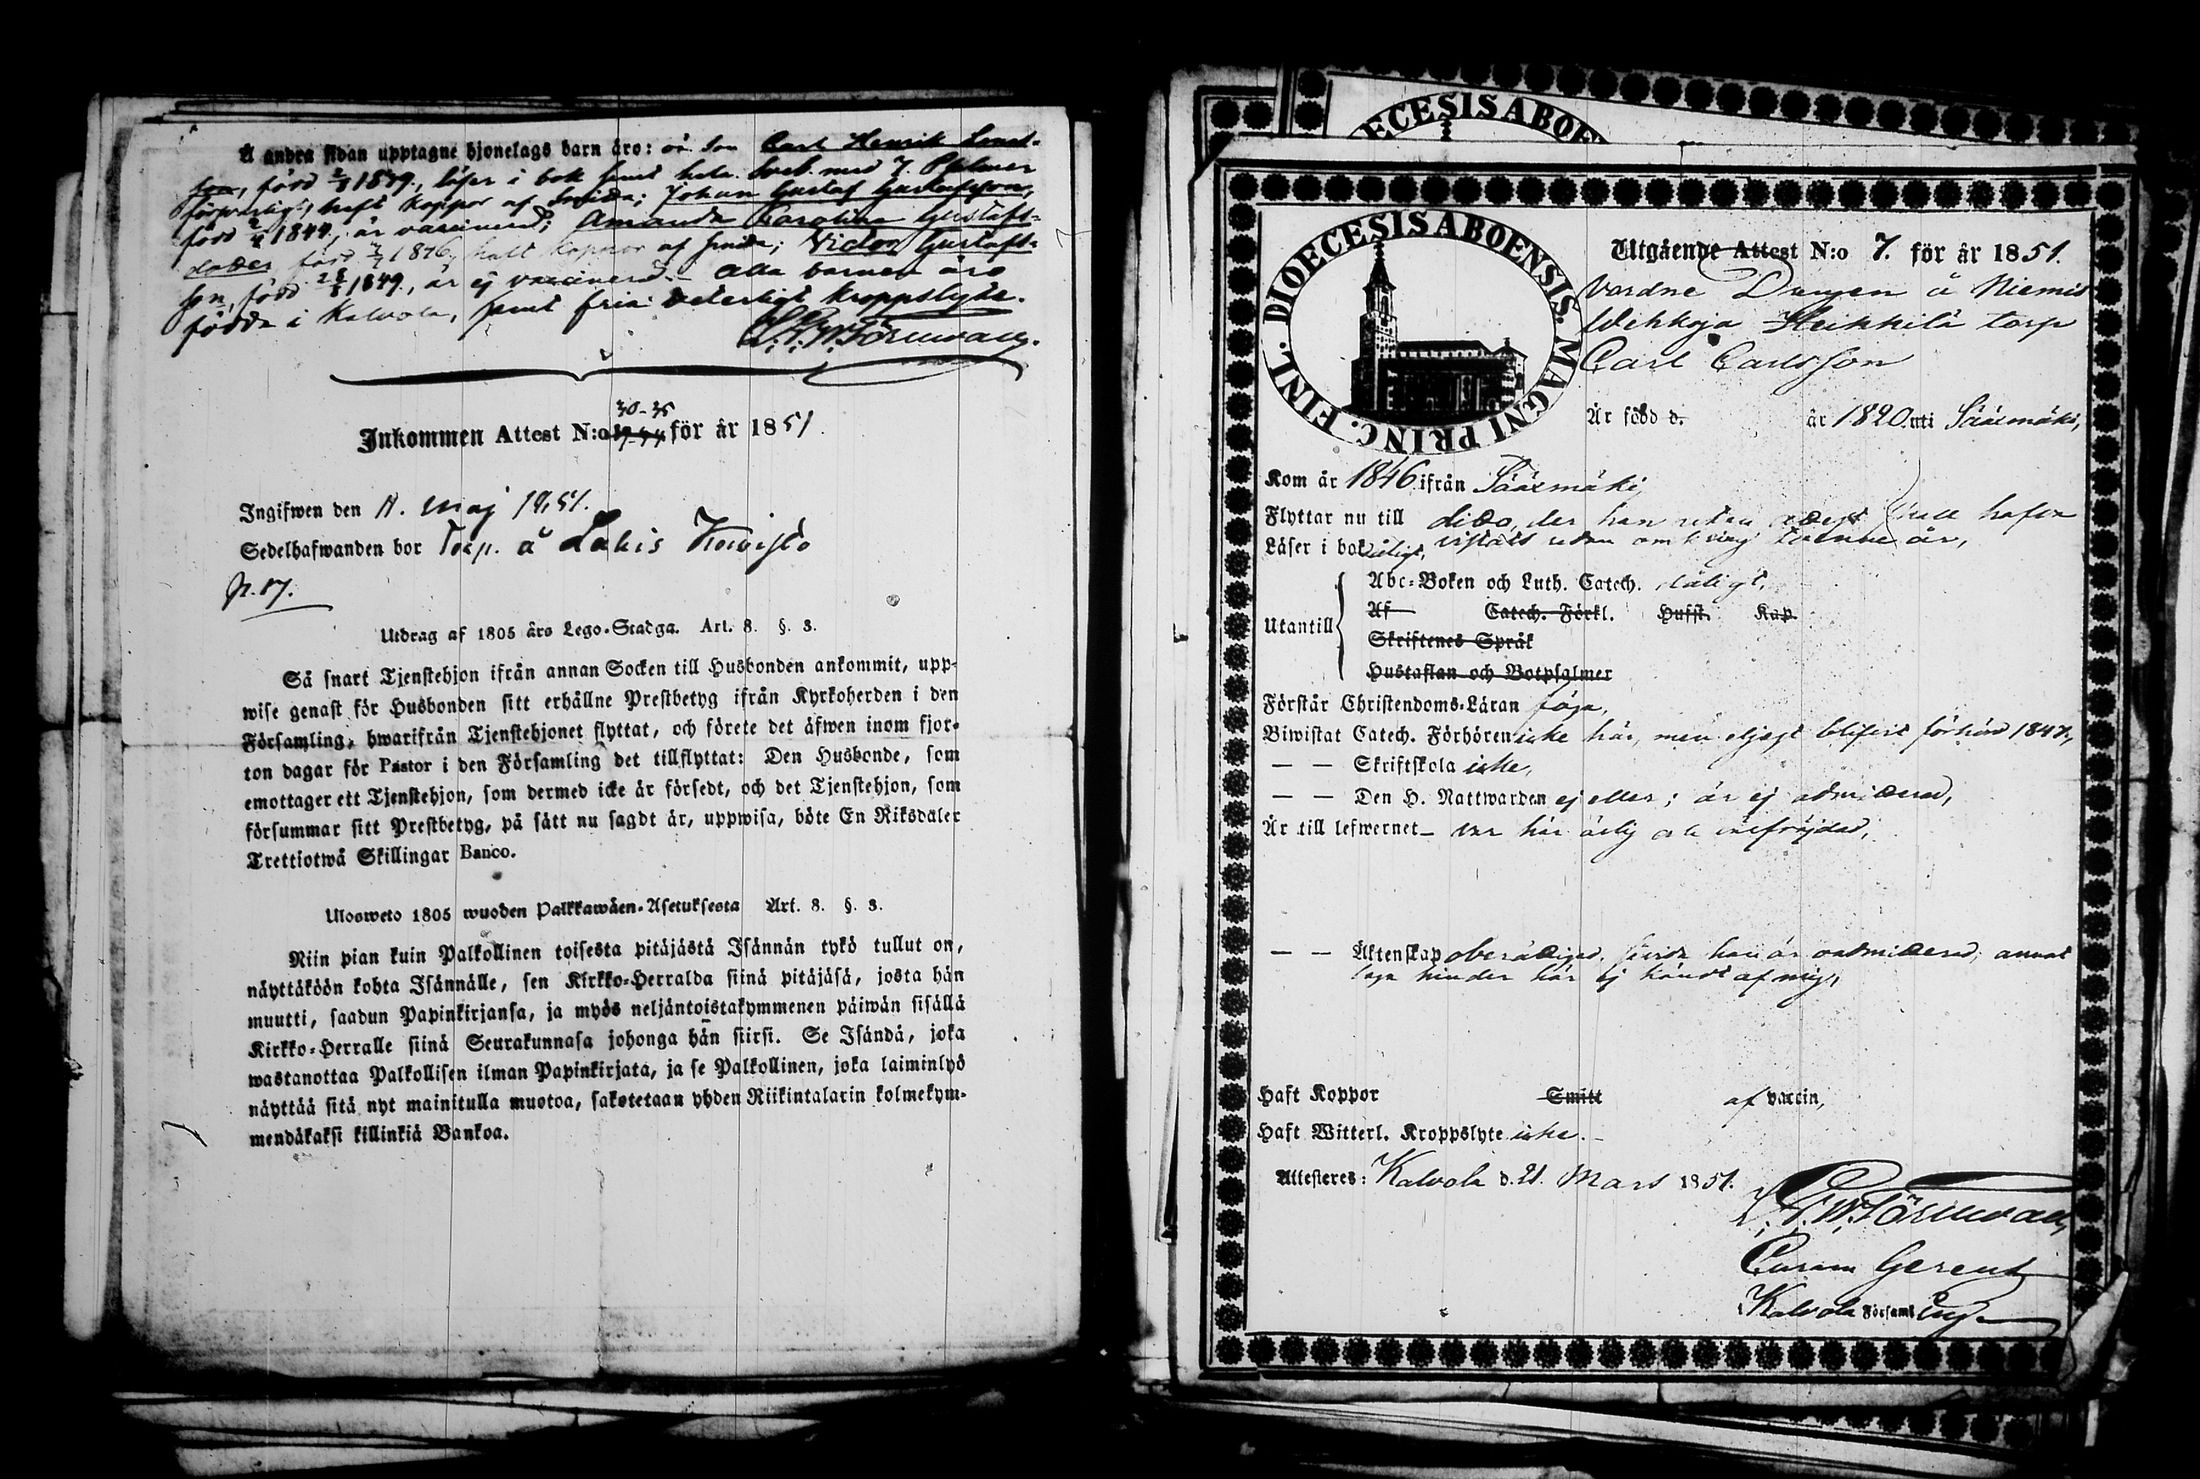 Å andra sidan upptagne hjonelags barn äro: Carl Henrik
son, född 2/3 1839, läser i bok samt hela med 7. Psalmer
försvarligt, haft koppor af smitta; Johan Gustaf Gustafsson,
född 1844, är vaccinerad; Amanda Carolina Gustafs-
doter född 1846, haft koppor af smitta; Victor Gustafs-
son, född 1849, är ej vaccinerad. Alla barnen äro
födda i Kalvola, samt fria veterligt kroppslyte.
Inkommen Attest N:o 30-35 för år 1851
Ingifwen den 11. Maj 1851.
Sedelhafwanden bor Torp. å Lahis Koivisto
p. 87.
Utdrag af 1805 års Lego-Stadga. Art. 8. §. 3.
Så snart Tjenstehjon ifrån annan Socken till Husbonden ankommit, upp-
wise genast för Husbonden sitt erhållne Prestbetyg ifrån Kyrkoherden i den
Församling, hwarifrån Tjenstehjonet flyttat, och förete det äfwen inom fjor-
ton dagar för Pastor i den Församling det tillflyttat: Den Husbonde, som
emottager ett Tjenstehjon, som dermed icke är försedt, och det Tjenstehjon, som
försummar sitt Prestbetyg, på sätt nu sagdt är, uppwisa, böte En Riksdaler
Trettiotwå Skillingar Banco.
Ulosweto 1805 wuoden Palkkawäen-Asetuksesta Art. 8. §. 3.
Niin pian kuin Palkollinen toisesta pitäjästä Isännän tykö tullut on,
näyttäköön kohta Isännälle, sen Kirkko-Herralda siinä pitäjäsä, josta hän
muutti, saadun Papinkirjansa, ja myös neljäntoistakymmenen päiwän sisällä
Kirkko-Herralle siinä Seurakunnasa johonga hän siirsi. Se Isändä, joka
wastanottaa Palkollisen ilman Papinkirjata, ja se Palkollinen, joka laiminlyö
näyttää sitä nyt mainitulla muotoa, sakotetaan yhden Riikintalarin kolmekym-
mendäkaksi killinkiä Bankoa.
ECESIS ABOEN
DIOECESIS ABOENSIS. MAGNI PRINC. FINL.
Utgående Attest N:o 7. för år 1851.
Vordne Drengen å Niemis
Wehkoja Heikkilä torp
Carl Carlsson
Är född d. år 1820. uti Sääxmäki,
Kom år 1846 ifrån Sääxmäki,
Flyttar nu till dito, der han utan skall hafva
Läser i bok vistats redan omkring tvenne år,
Utantill
Abc-Boken och Luth. Catech. dåligt,
Af Catech. Förkl. Hufst. Kap.
Skriftenes Språk
Hustaflan och Botpsalmer
Förstår Christendoms-Läran föga,
Biwistat Catech. Förhören icke här, men eljest blifvit förhörd 1847,
— — Skriftskola icke,
— — Den H. Nattwarden ej eller; är ej admitterad,
Är till lefwernet var här ärlig och välfräjdad,
— — Äktenskap oberättigad, han är oadmitterad, annat
laga hinder här ej kändt af mig,
Haft Koppor Smitt af vaccin,
Haft Witterl. Kroppslyte icke.
Attesteres: Kalvola d. 21. Mars 1851.
Curam Gerent
Kalvola Församl.